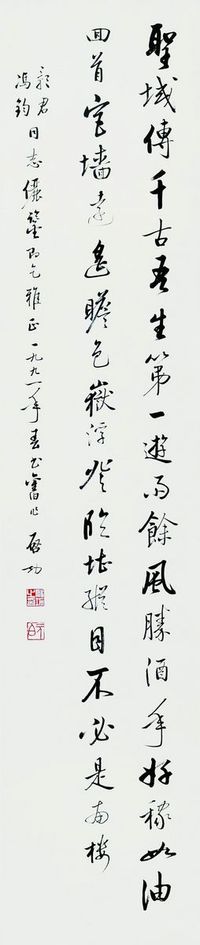 聖域傳千古吾生第一遊雨餘風勝酒年好稼如油
回首宮墻遠遙瞻嶽浮登臨堪縱目不必是南樓
君
馮鈞同志儷鑒即乞雅正一九九一年春書舊作 啟功